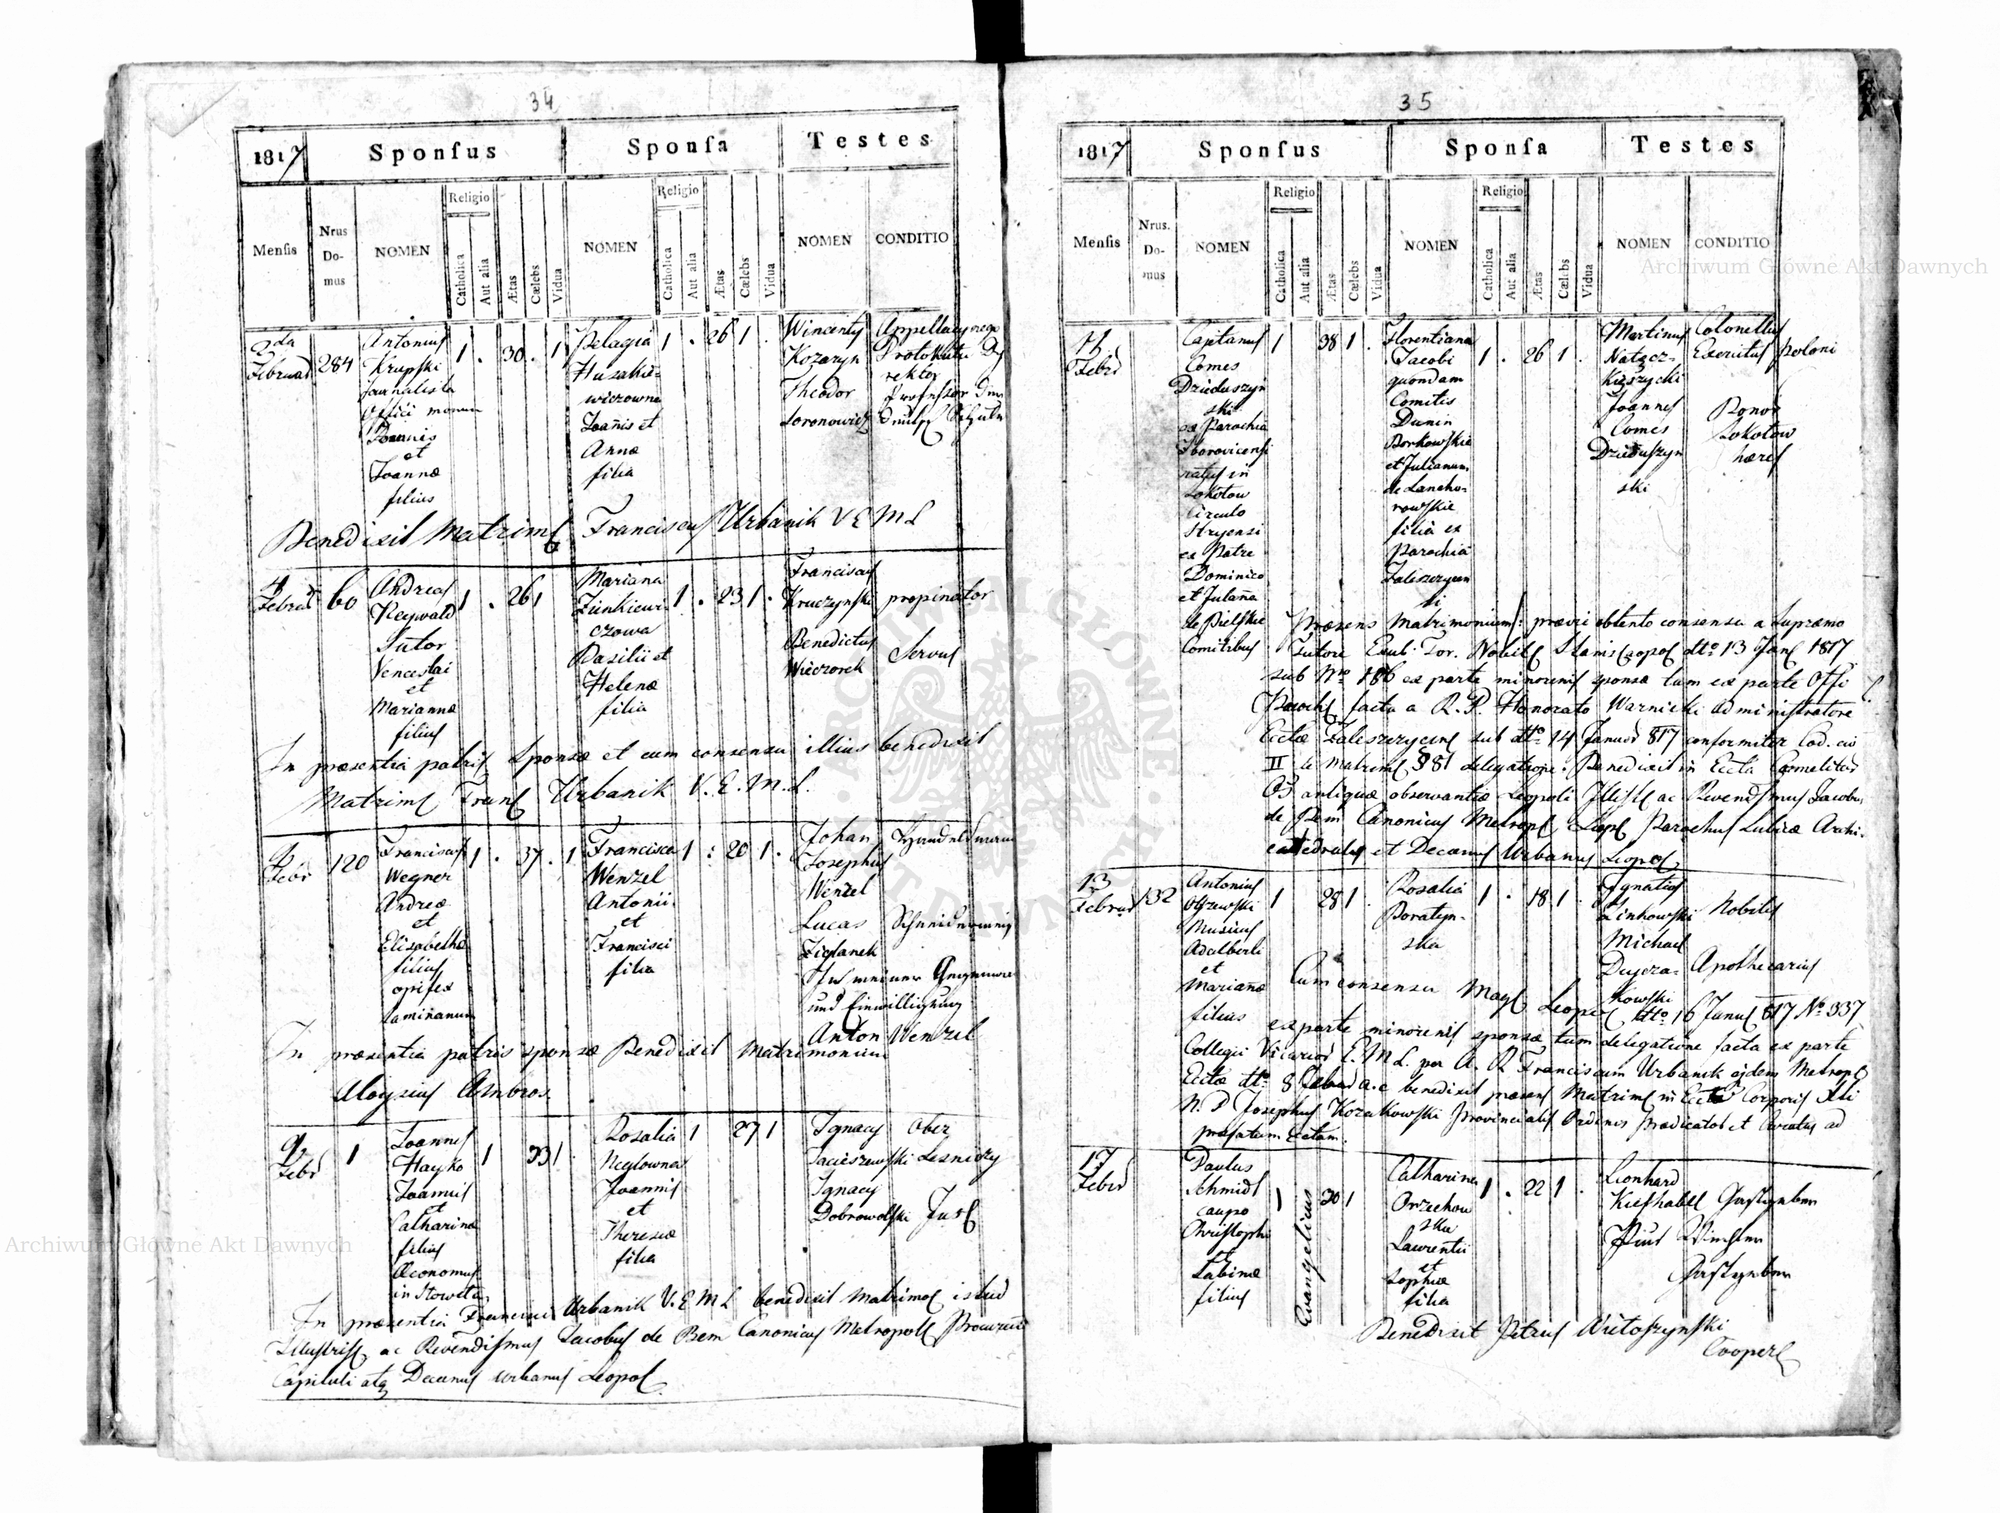 34
1817
Sponsus
Sponsa
Testes
Mensis
Nrus Domus
NOMEN
Religio
Catholica
Aut alia
Ætas
Cœlebs
Vidua
NOMEN
Religio
Catholica
Aut alia
Ætas
Cœlebs
Vidua
NOMEN
CONDITIO
2da
Februar
284
Antonius
Krupski
Journalista
Joannis
et
Joannæ
filius
1 . 30 . 1
Pelagia
Husakie-
wiczowna
Joañis et
Annæ
filia
1 . 26 1 .
Wincenty
Kozaryn
Theodor
Soronowicz
Benedixit Matrim Franciscus Urbanik V E M L
4
Febru
60
Andreas
Reywald
Sutor
Venceslai
et
Mariannæ
filius
1 . 26 1
Mariana
Zienkiewi-
czowa
Basilii et
Helenæ
filia
1 . 23 1 .
Franciscus
Kruczynski
propinator
Benedictus
Wieczorek
Servus
In præsentia patris Sponsæ et cum consensu illius benedixit
Matrim Franc Urbanik V. E. M. L.
Febr
120
Franciscus
Wegner
Andreæ
et
Elisabethæ
filius
opifex
laminarum
1 . 37 . 1
Francisca
Wenzel
Antonii
et
Francisci
filia
1 : 20 1 .
Johan
Josephus
Wenzel
Handelsmann
Lucas
Zieglanek
Schneidermeis
und Einwilligung
Anton Wenzel
In præsentia patris sponsæ Benedixit Matrimonium
Aloysius Ambros.
9
Febr
1
Joannes
Hayko
Joannis
et
Catharinæ
filius
Œconomus
1 33 1
Rosalia
Neylowna
Joannis
et
Theresiæ
filia
1 27 1
Ignacy
Jacieszewski
Ober
Lesniczy
Ignacy
Dobrowolski
Just
In præsentia Francisci Urbanik V. E M L benedixit Matrimo istud
Illustris ac Revendissmus Jacobus de Bem Canonicus Metropoll
Capituli atq Decanus urbanus Leopol
35
1817
Sponsus
Sponsa
Testes
Mensis
Nrus. Domus
NOMEN
Religio
Catholica
Aut alia
Ætas
Cœlebs
Vidua
NOMEN
Religio
Catholica
Aut alia
Ætas
Cœlebs
Vidua
NOMEN
CONDITIO
Febr
Cajetanus
Comes
Dzieduszyn
ski
ex Parochia
natus in
Sokolow
Circulo
Stryensi
ex Patre
Dominico
et Juliana
de Bielskie
Comitibus
1 38 1 .
Florentiana
Jacobi
quondam
Comitis
Dunin
Borkowskie
et Julianna
de Lancko-
rowskie
filia ex
Parochia
1 . 26 1 .
Martinus
Colonellus
Exercitus Poloni
Joannes
Comes
Dzieduszyn
ski
Bonor
Sokolow
hæres
Præsens Matrimonium prævie obtento consensu a Supremo
Tutore Nobil Stanis dtto 13 Jan 1817
sub Nro 186 ex parte minorenis sponsæ tum ex parte Offi
facta a R. P. Honorato Warnicki administratore
sub dtto 14 Januar 817 conformiter Cod. civ
II de Matrim § 81 delegatione: Benedixit in Eccla Carmelitar
antiquæ observantiæ Leopoli Illis ac Revendssmus Jacobus
de Bem Canonicus Metrop Leop Parochus Archi-
catedralis et Decanus Urbanus Leopol
13
Februar
132
Antonius
Olszewski
Musicus
Adalberti
et
Marianæ
filius
1 28 1 .
Rosalia
Boratyn-
ska
1 . 18 1 .
Ignatius
Linkowski
Nobilis
Michael
Apothecarius
Cum consensu Mag Leopol dtto 16 Januar 817 No 337
ex parte minorenis sponsæ tum delegatione facta ex parte
Collegii Vicarior E. M L. per A. R Franciscum Urbanik ejdem Metrop
Eccla dtto 8 Februar a.c benedixit præsens Matrim in Eccla Corporis Xti
R. P Josephus Kozakowski Provincialis Ordinis Prædicator et Curatus ad
præfatam Ecclam.
17
Febr
Paulus
Schmidt
caupo
Christophi
et
Sabinæ
filius
1
Evangelicus
30 1
Catharina
Orzechow
ska
Laurentii
et
Sophiæ
filia
1 . 22 1 .
Leonhard
Kiefhabel
Gastgeber
Gastgeber
Benedixit Petrus Wietoszynski
Cooper
Archiwum Główne Akt Dawnych
Archiwum Główne Akt Dawnych
ARCHIWUM GŁÓWNE AKT DAWNYCH